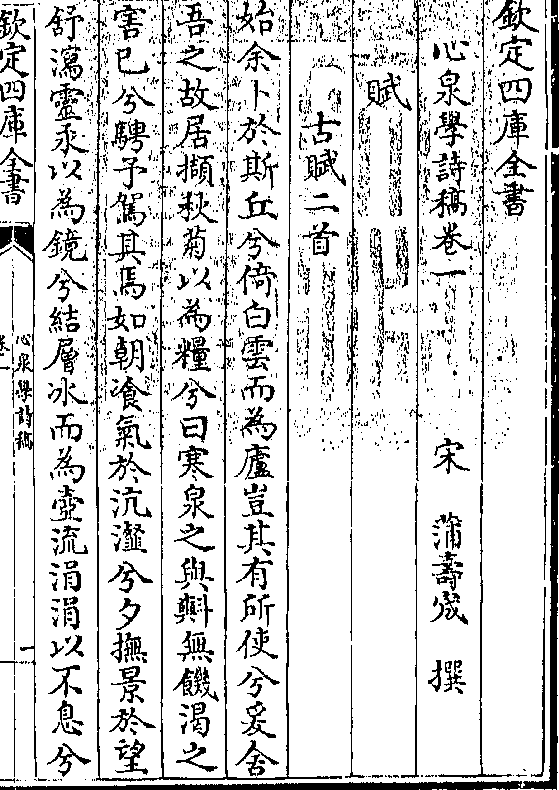 欽定四庫全書
心泉學詩稿卷一
宋 蒲壽宬 撰
賦
古賦二首
始余卜於斯丘兮倚白雲而為廬豈其有所使兮爰舍
吾之故居擷秋菊以為糧兮曰寒泉之與㪺無饑渴之
害已兮騁予駕其焉如朝飡氣於沆瀣兮夕撫景於望
舒瀉靈汞以為鏡兮結層冰而為壺流涓涓以不息兮
欽定四庫全書
心泉學詩稿
卷一
一